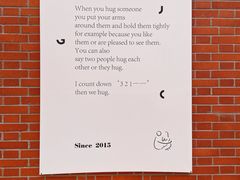 When you hug someone
you put your arms
around them and hold them tightly
for example because you like
them or are pleased to see them.
You can also
say two people hug each
other or they hug.
I count down "3 2 1——"
then we hug.
Since 2015